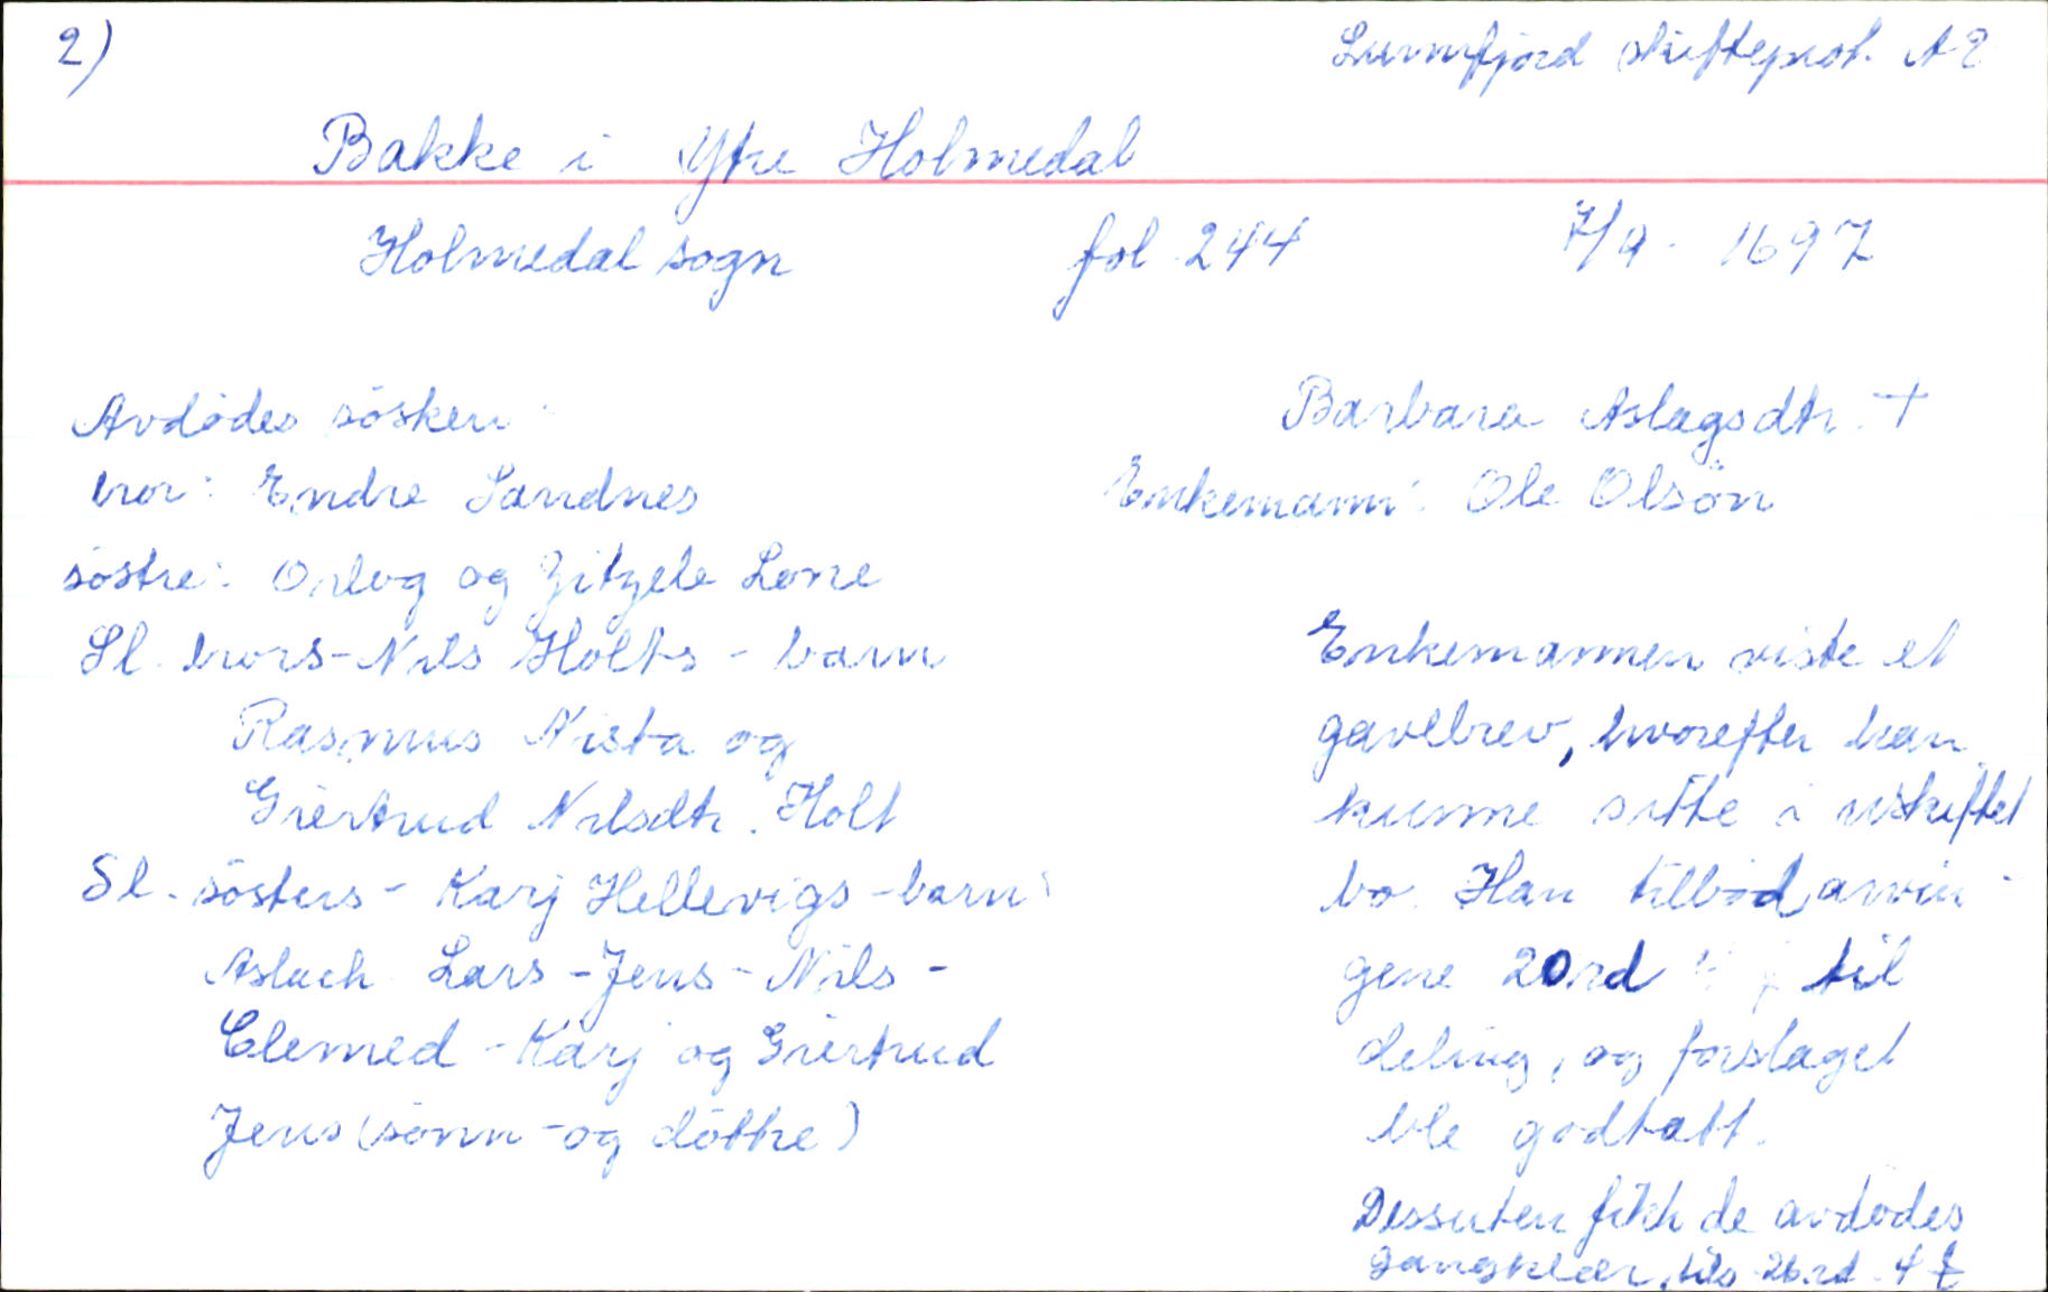 2)
Sunnfjord skifteprot. A 2
Bakke i Ytre Holmedal
Holmedal sogn fol 244 7/9 - 1697
Avdödes sösken:
bror: Endre Sandnes
söstre: Orlog og Zitzele Lone
Sl. brors - Nils Holts - barn
Rasmus Nista og
Giertrud Nilsdtr. Holt
Sl. sösters - Karj Hellevigs - barn:
Aslach Lars - Jens - Nils -
Clemed - Karj og Giertrud
Jens (sönn - og döttre)
Barbara Aslagsdtr. +
Enkemann: Ole Olsön
Enkemannen viste et
gavebrev, hvorefter han
kunne sitte i uskiftet
bo. Han tilbød arvin-
gene 20 rd til
deling, og forslaget
ble godtatt.
Dessuten fikk de avdødes
gangklær, tils 26 rd. 4